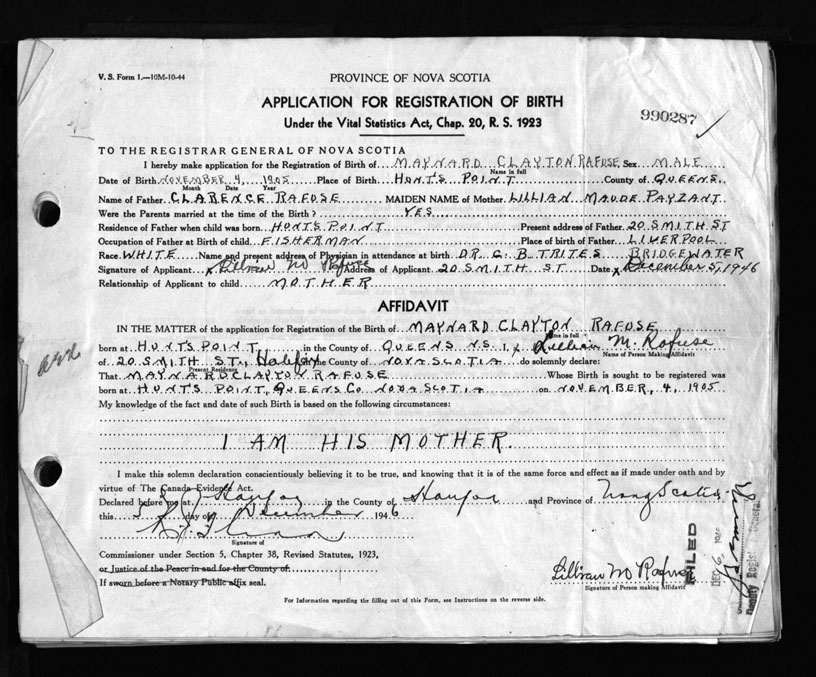 V. S. Form 1.—10M-10-44
PROVINCE OF NOVA SCOTIA
APPLICATION FOR REGISTRATION OF BIRTH
990287
Under the Vital Statistics Act, Chap. 20, R. S. 1923
TO THE REGISTRAR GENERAL OF NOVA SCOTIA
I hereby make application for the Registration of Birth of MAYNARD CLAYTON RAFUSE Sex MALE
Name in full
Date of Birth NOVEMBER 4, 1905 Place of Birth HUNTS POINT County of QUEENS
Month Date Year
Name of Father CLARENCE RAFUSE MAIDEN NAME of Mother LILLIAN MAUDE PAYZANT
Were the Parents married at the time of the Birth? YES
Residence of Father when child was born HUNTS POINT Present address of Father 20 SMITH ST
Occupation of Father at Birth of child FISHERMAN Place of birth of Father LIVERPOOL
Race WHITE Name and present address of Physician in attendance at birth DR. C. B. TRITES BRIDGEWATER
Signature of Applicant x Lillian M Rafuse Address of Applicant 20 SMITH ST Date x December 5, 1946
Relationship of Applicant to child MOTHER
AFFIDAVIT
IN THE MATTER of the application for Registration of the Birth of MAYNARD CLAYTON RAFUSE
Name in full
born at HUNTS POINT in the County of QUEENS N.S. I, x Lillian M. Rafuse
Name of Person Making Affidavit
of 20 SMITH ST., Halifax the County of NOVA SCOTIA do solemnly declare:
Present Residence
That MAYNARD CLAYTON RAFUSE Whose Birth is sought to be registered was
born at HUNTS POINT, QUEENS Co NOVA SCOTIA on NOVEMBER, 4, 1905
My knowledge of the fact and date of such Birth is based on the following circumstances:
I AM HIS MOTHER.
I make this solemn declaration conscientiously believing it to be true, and knowing that it is of the same force and effect as if made under oath and by
virtue of The Canada Evidence Act.
Declared before me at Halifax in the County of Halifax and Province of Nova Scotia
this day of December 1946
Signature of
Commissioner under Section 5, Chapter 38, Revised Statutes, 1923,
or Justice of the Peace in and for the County of
If sworn before a Notary Public affix seal.
Lillian M Rafuse
Signature of Person making Affidavit
FILED
DEC 6
Deputy Registrar General
For Information regarding the filling out of this Form, see Instructions on the reverse side.